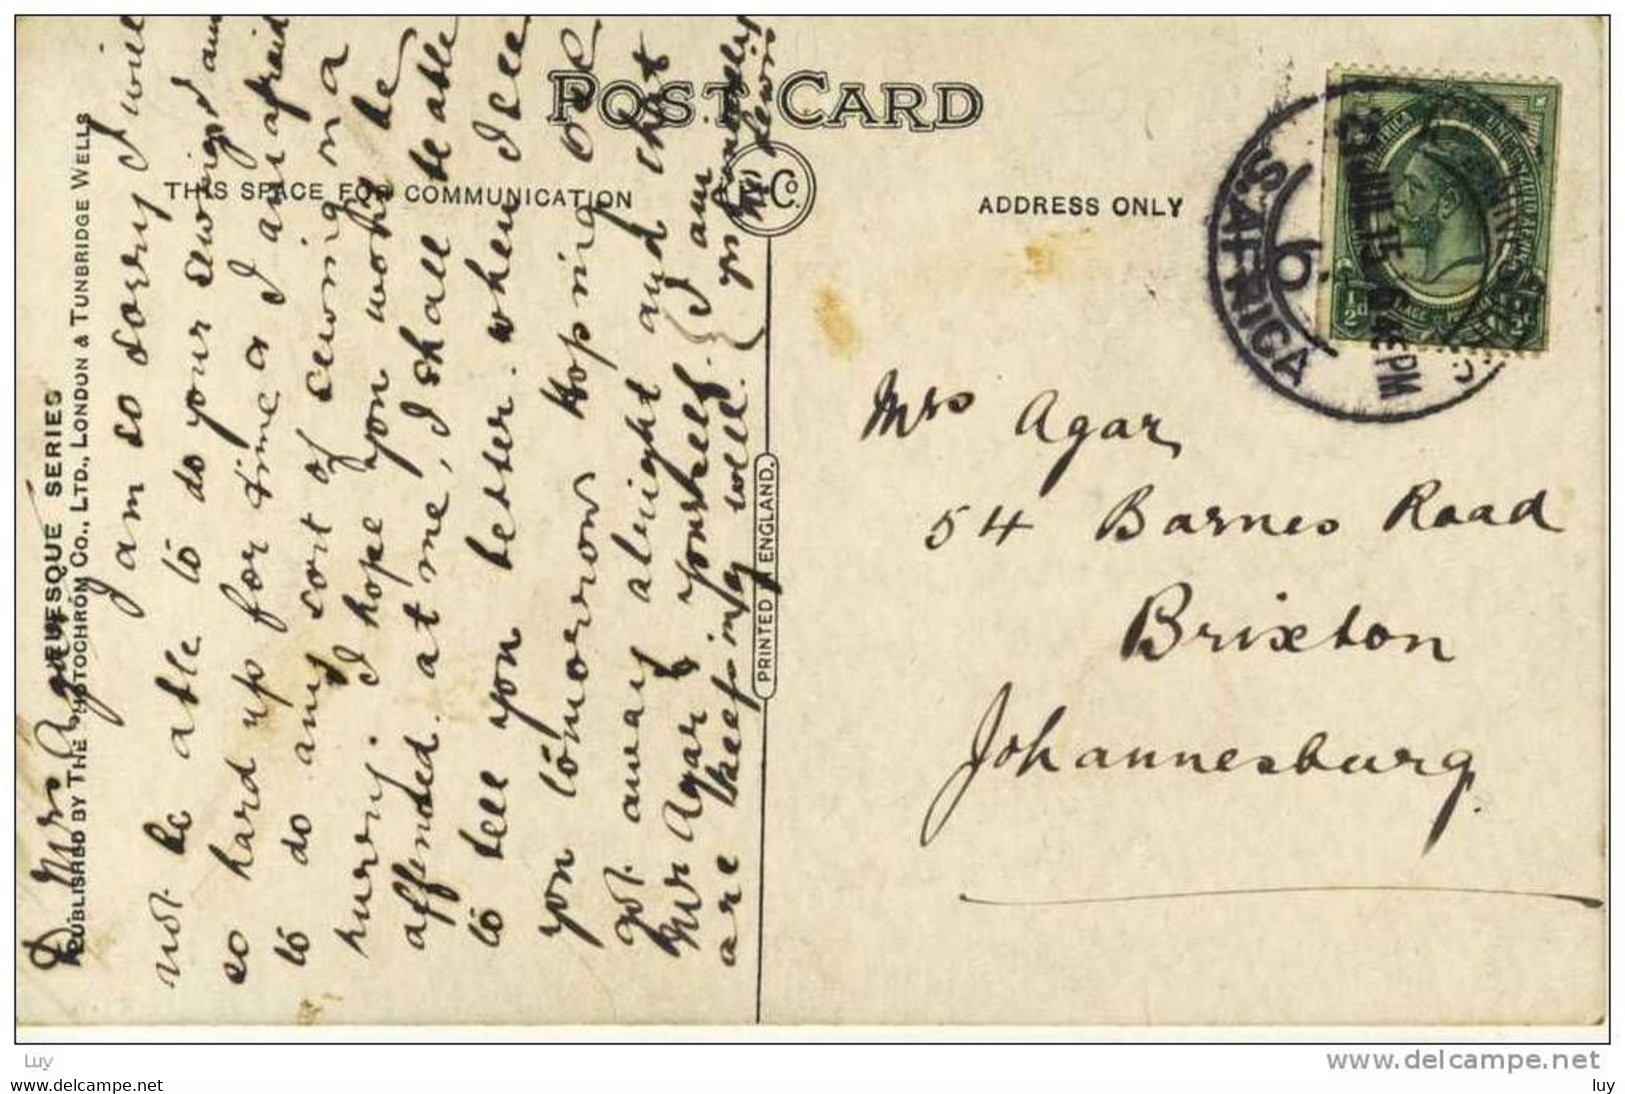 POST CARD
THIS SPACE FOR COMMUNICATION
ADDRESS ONLY
Co.
D Mrs Agar
I am so sorry I will
not be able to do your sewing I am
so hard up for time & I am afraid
to do any sort of sewing in a
hurry. I hope you wont be
affended at me, I shall be able
to tell you better when I see
you tomorrow Hoping Ocd
got away alright and that
Mr Agar & Yourself
are Keeping well.
I am
yrs
Mrs Agar
54 Barnes Road
Brixton
Johannesburg.
S. AFRICA
6
PM
½d
½d
PICTURESQUE SERIES
PUBLISHED BY THE PHOTOCHROM CO., LTD., LONDON & TUNBRIDGE WELLS
PRINTED IN ENGLAND.
Luy
www.delcampe.net
look-at-me-cards
luy